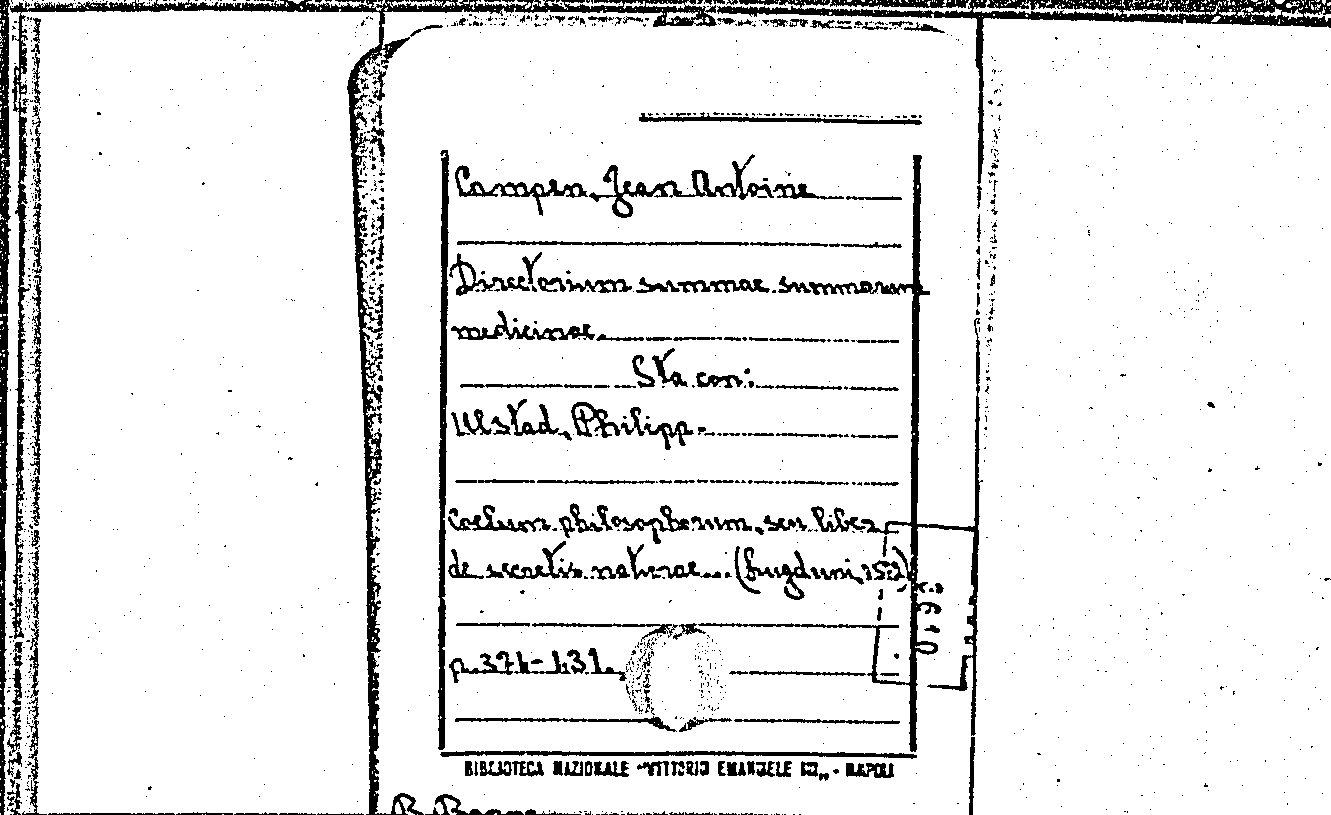 Campen, Jean Antoine
Directorium summae summarum
medicinae.
Sta con:
Ulstad, Philipp.
Coelum philosophorum, seu liber
de secretis naturae... (Lugduni,
p. 371-431.
BIBLIOTECA NAZIONALE "VITTORIO EMANUELE III" - NAPOLI